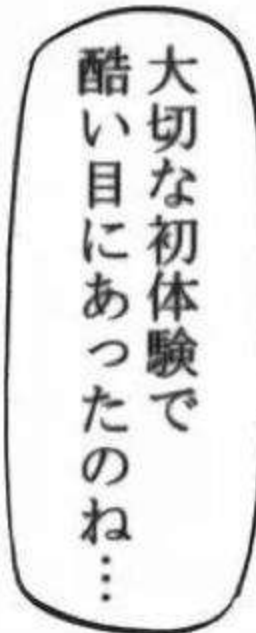 大切な初体験で
酷い目にあったのね…